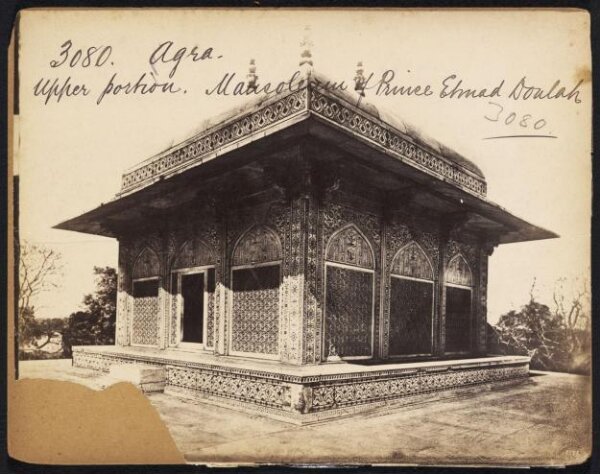 3080. Agra.
Upper portion. Mausoleum of Prince Etmad Doulah
3080.